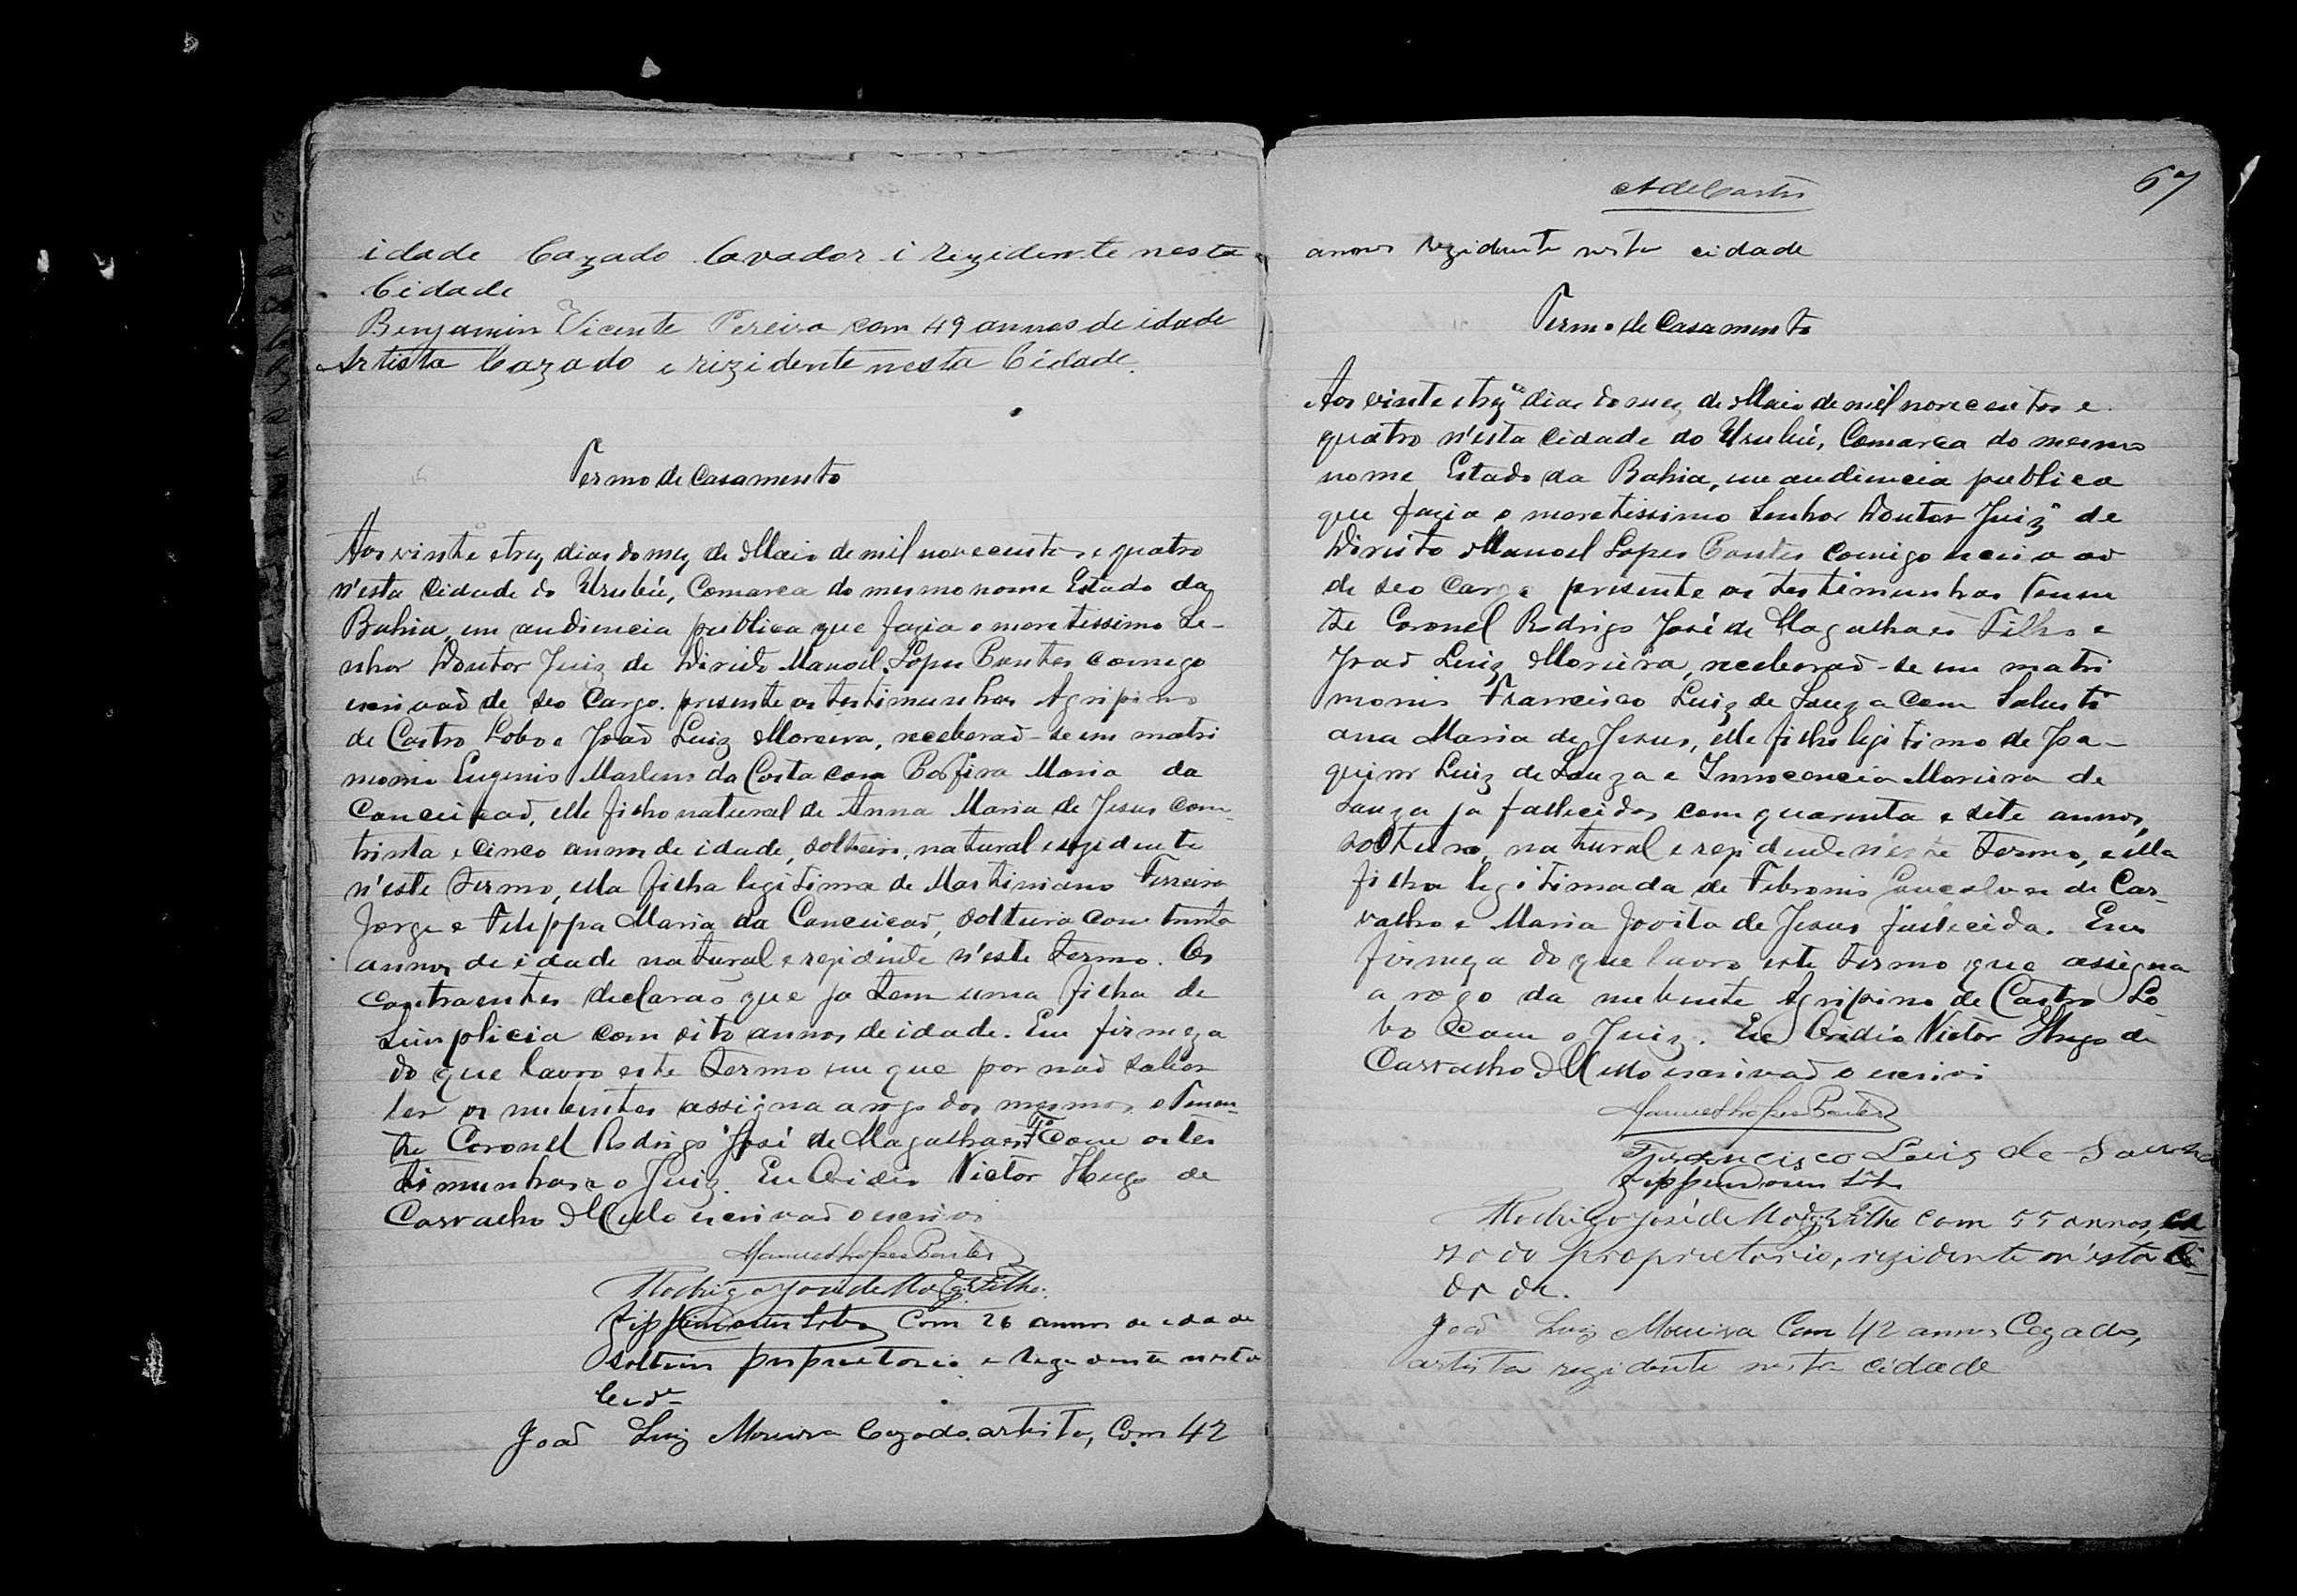 idade Cazado Lavador i rezidente nesta
Cidade
Benjamin Vicente Pereira com 49 annos de idade
Artista Cazado e rizidente nesta Cidade.
Termo de Casamento
Aos vinte e trez dias do mez de Maio de mil novecentos e quatro
n'esta Cidade do Urubú, Comarca do mesmo nome Estado da
Bahia, em audiencia publica que fazia o moretissimo Se-
nhor Doutor Juiz de Direito Manoel Lopes Pontes comigo
escrivaõ de seo Cargo. presente as testimunhas Agripino
de Castro Lobo e Joaõ Luiz Moreira, receberaõ-se em matri
monio Eugenio Marlens da Costa com Porfira Maria da
Conceicaõ, elle filho natural de Anna Maria de Jesus com
trinta e cinco annos de idade, solteiro, natural e rezidente
n'este termo, ella filha legitima de Martiniano Ferreira
Jorge e Felippa Maria da Conceicaõ, solteira com trinta
annos de idade natural e rezidente n'este termo. Os
contraentes declaraõ que ja tem uma filha de
Simplicia com oito annos de idade. Em firmeza
do que lavro este termo em que por naõ saber
ler os nubentes assigna a rogo dos mesmos o Tenen-
te Coronel Rodrigo José de Magalhaes Fº Com as tes
timunhas e o Juiz. Eu Ovidio Victor Hugo de
Carvalho Mello escrivaõ o escrivi
Manuel Lopes Pontes
Rodrigo José de Magᵉˢ Filho.
Agippino Castro Lobo Com 26 annos de idade
solteiro proprietorio e rezedente nesta
Cidᵉ
Joaõ Luiz Moreira Cazado. artista, Com 42
A de Castro
67
annos rezidente nesta cidade
Termo de Casamento
Aos vinte e trez dias do mez de Maio de mil novecentos e
quatro n'esta Cidade do Urubú, Comarca do mesmo
nome Estado da Bahia, em audiencia publica
que fazia o moretissimo Senhor Doutor Juiz de
Direito Manoel Lopes Pontes comigo escrivaõ
de seo Cargo presente as testimunhas Tenen
te Coronel Rodrigo José de Magalhaes Filho e
Joaõ Luiz Moreira, receberaõ-se em matri
monio Francisco Luiz de Souza com Salusti
ana Maria de Jesus, elle filho legitimo de Joa-
quim Luiz de Souza e Innocencia Moreira de
Souza ja fallecidos com quarenta e sete annos,
solteiro, natural e rezidente n'este termo, e ella
filha legitimada de Febronio Goncalves de Car-
valho e Maria Jovita de Jesus fallecida. Em
firmeza do que lavro este termo que assigna
a rogo da nubente Agripino de Castro Lo-
bo Com o Juiz. Eu Ovidio Victor Hugo de
Carvalho Mello escrivaõ o escrivi
Manuel Lopes Pontes
Francisco Luiz de Souza
Rodrigo José de Magᵉˢ Filho com 55 annos, ca
zado proprietorio, rezidente n'esta Ci-
dade.
Joaõ Luiz Moreira Com 42 annos Cazado,
artista rezidente nesta cidade